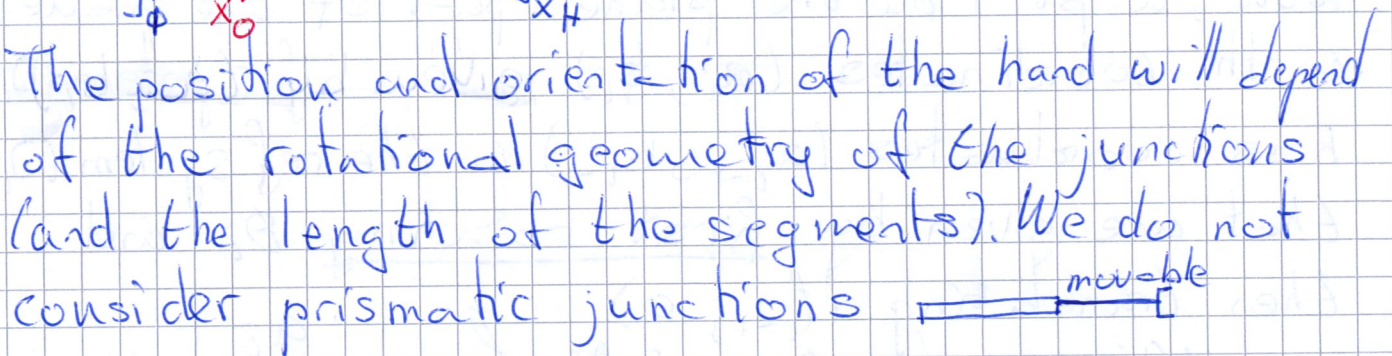 ϕ x₀ x_H
The position and orientation of the hand will depend
of the rotational geometry of the junctions
(and the length of the segments). We do not
movable
consider prismatic junctions